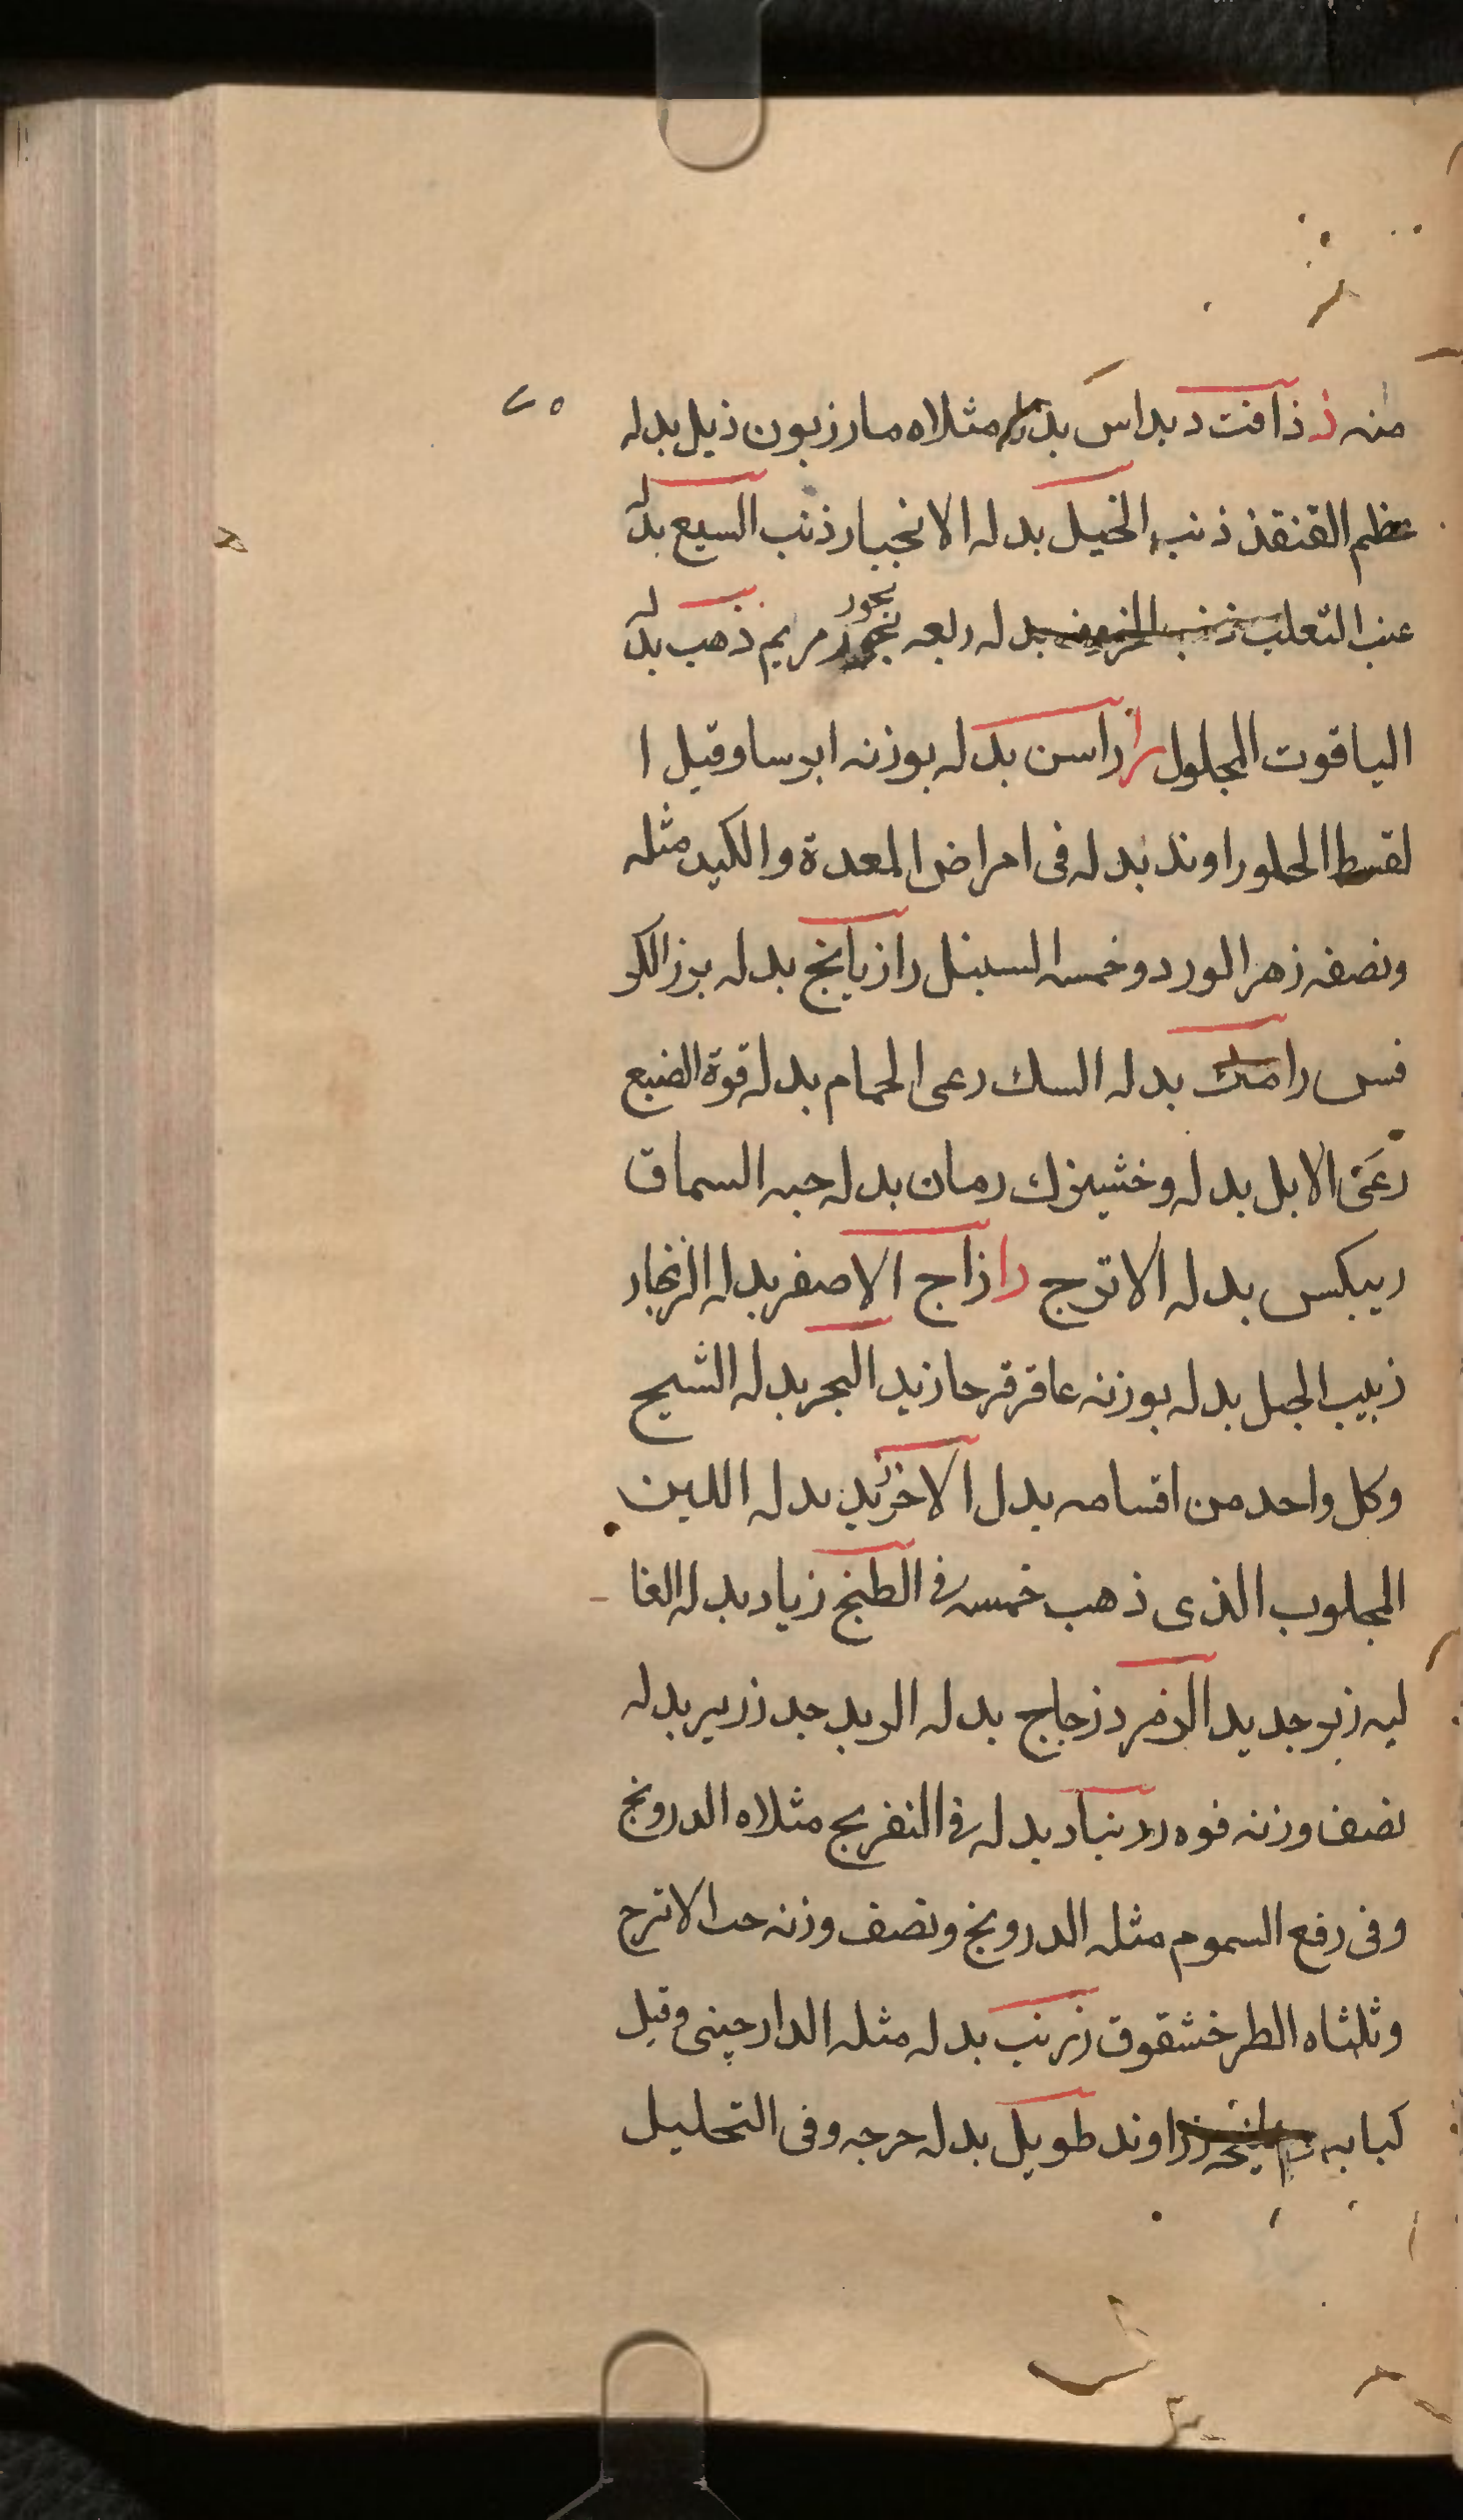 منه ذ ذافنت دبداس بدله مثلاه مارزبون ذيل بدله
عظم القنقذ ذنب الخيل بدله الانجبار ذنب السبع بدله
عنب الثعلب بدله ربعه بخور مريم ذهب بدله
الياقوت المحلول ر راسن بدله بوزنه ايرسا وقيل ا
لقسط الحلو راوند بدله فى امراض المعدة والكبد مثله
ونصفه زهر الورد وخمسه السنبل رازيانج بدله بزر الكر
فس رامك بدله السك رعى الحمام بدله قوة الضبع
رعى الابل بدله وخشيزك رمان بدله حبه السماق
ريبكس بدله الاترج را زاج الاصفر بدله الزنجار
زبيب الجبل بدله بوزنه عاقرقرحا زبد البحر بدله الشيح
وكل واحد من اقسامه بدل الاخر زبد بدله اللبن
المحلوب الذى ذهب خمسه فى الطبخ زباد بدله الغا
ليه زبرجد يد الزمرد زجاج بدله الزبرجد زرير بدله
نصف وزنه فوه زرنباد بدله فى التفريح مثلاه الدرونج
وفى رفع السموم مثله الدرونج ونصف وزنه حب الاترج
وثلثاه الطرخشقوق زرنب بدله مثله الدارچينى وقيل
كبابه زراوند طويل بدله حرجه وفى التحليل